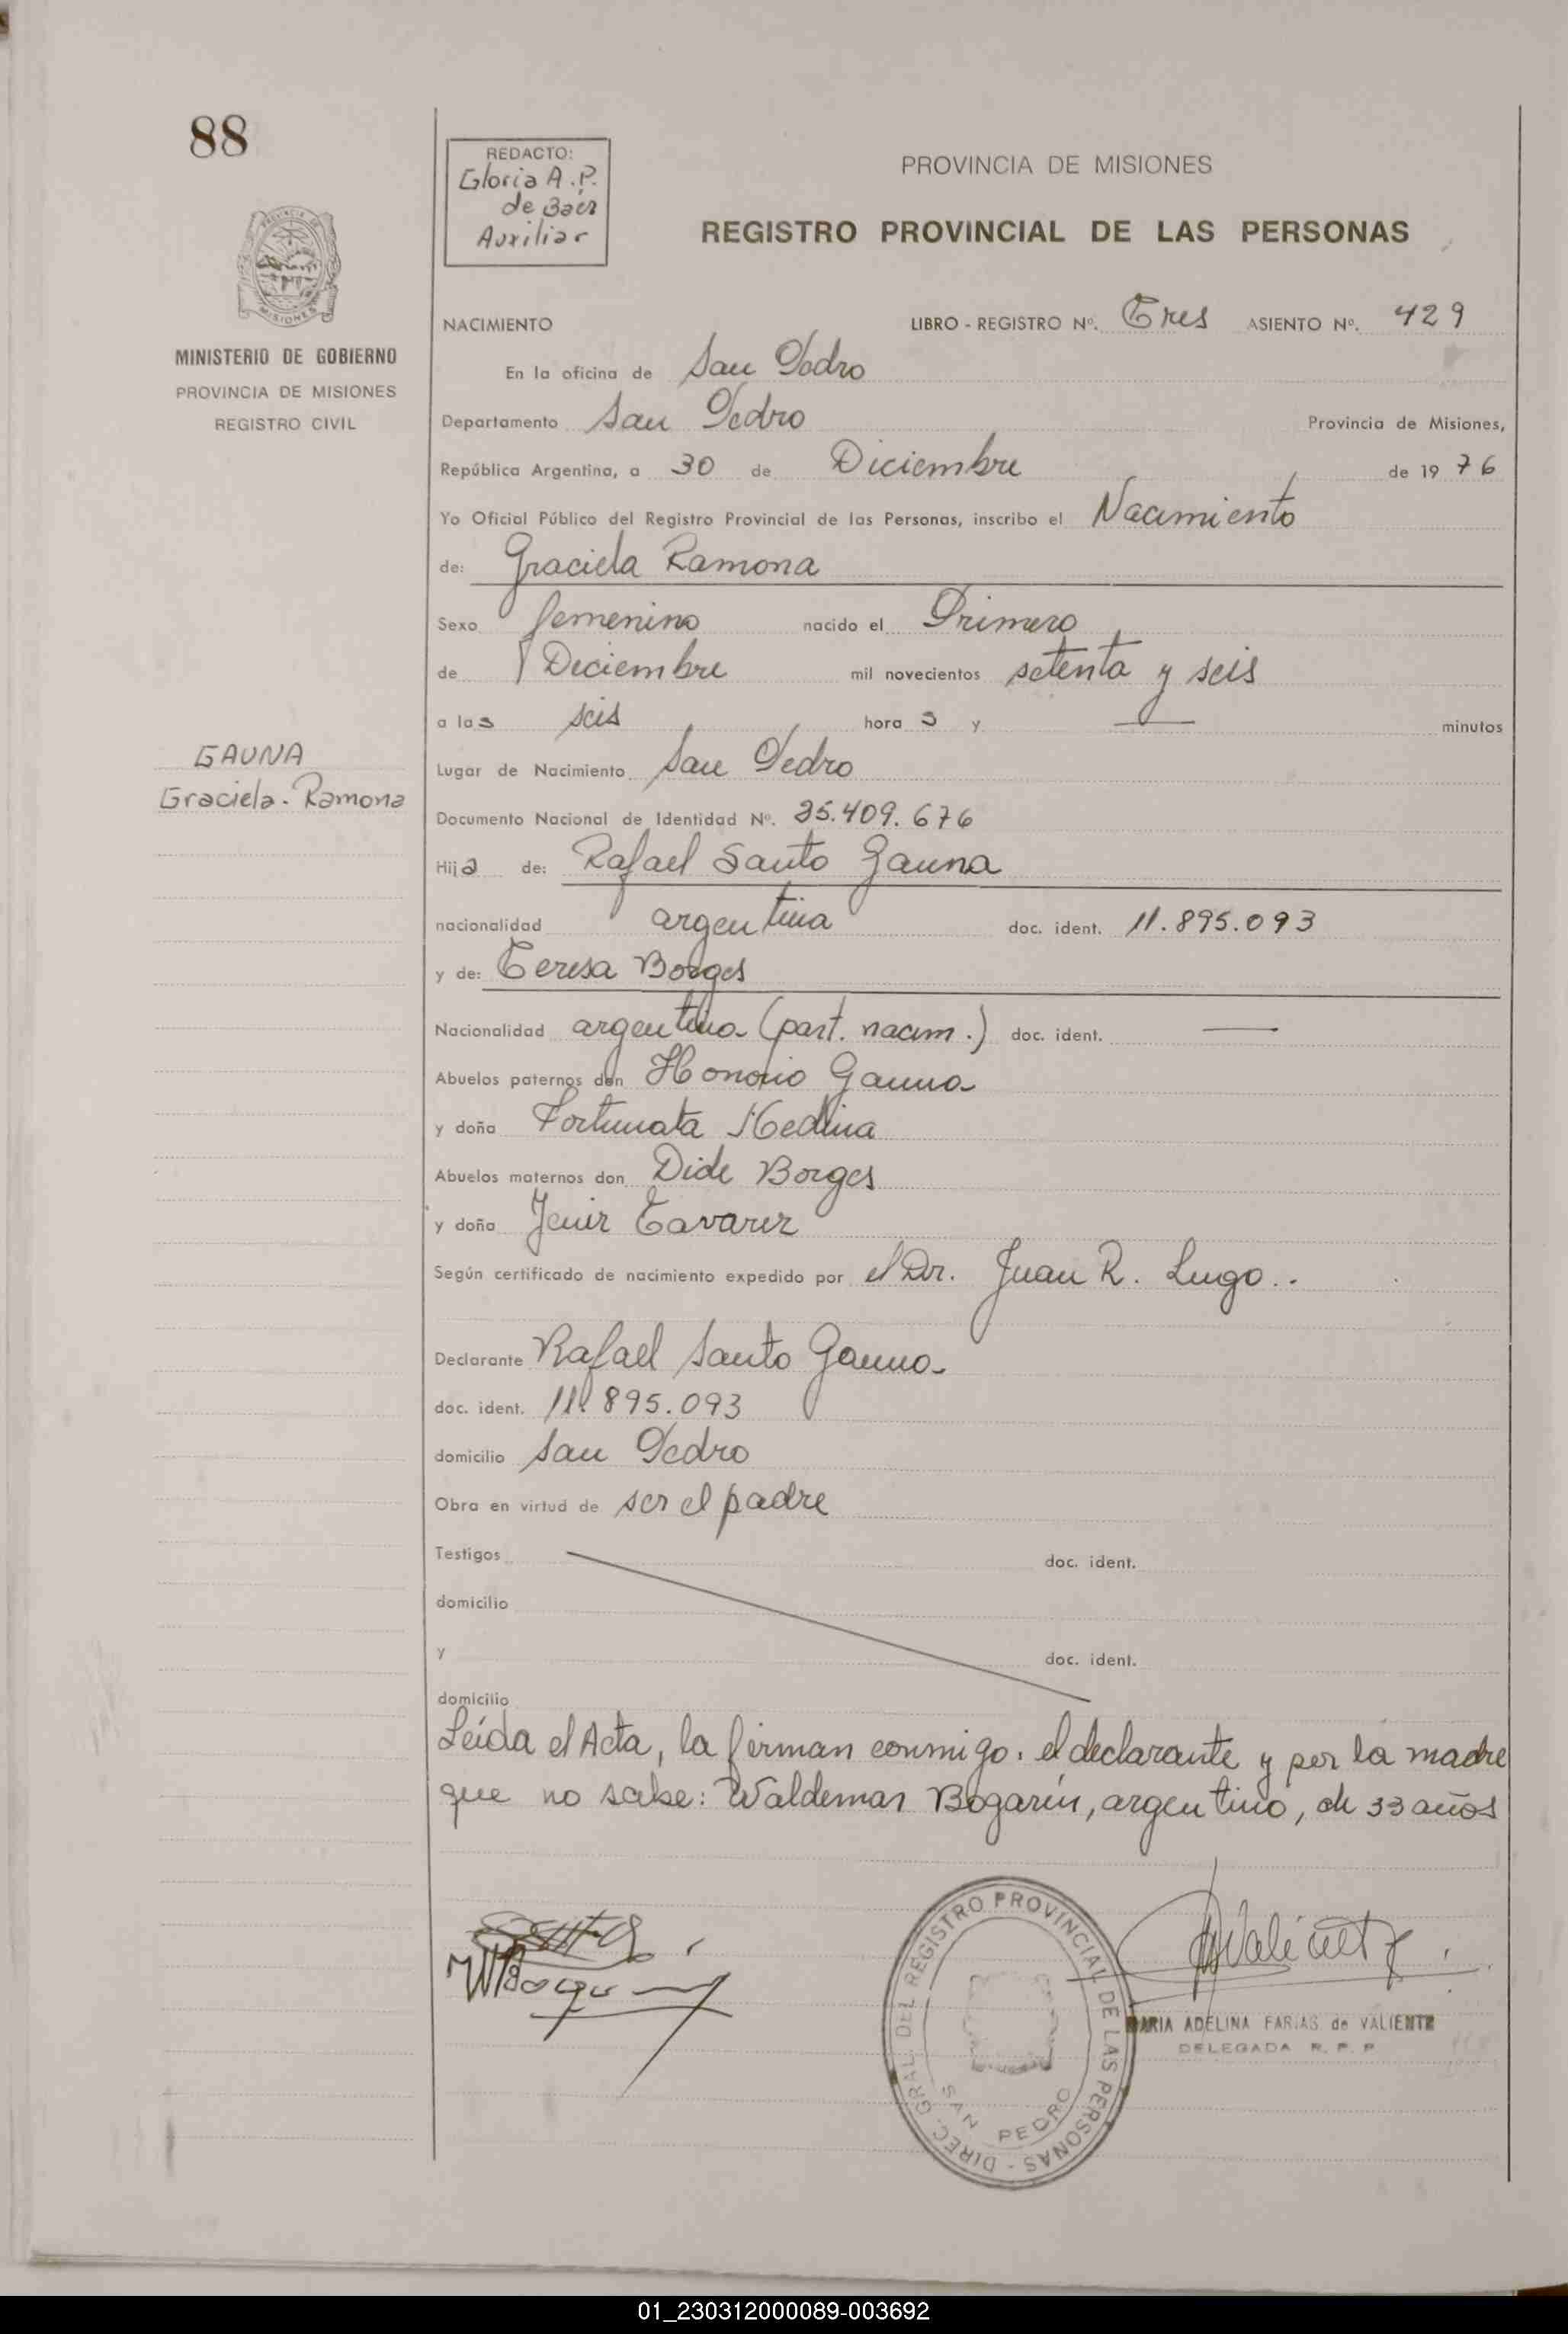 88
REDACTO:
Gloria A. P.
de Baer
Auxiliar
PROVINCIA DE MISIONES
REGISTRO PROVINCIAL DE LAS PERSONAS
PROVINCIA DE MISIONES
MINISTERIO DE GOBIERNO
PROVINCIA DE MISIONES
REGISTRO CIVIL
NACIMIENTO LIBRO - REGISTRO Nº. Tres ASIENTO Nº. 429
En la oficina de San Pedro
Departamento San Pedro Provincia de Misiones,
República Argentina, a 30 de Diciembre de 19 76
Yo Oficial Público del Registro Provincial de las Personas, inscribo el Nacimiento
de: Graciela Ramona
Sexo femenino nacido el Primero
de Diciembre mil novecientos setenta y seis
a las seis horas y — minutos
Lugar de Nacimiento San Pedro
GAUNA
Graciela - Ramona
Documento Nacional de Identidad Nº. 25.409.676
Hija de: Rafael Santo Gauna
nacionalidad argentina doc. ident. 11.895.093
y de: Teresa Borges
Nacionalidad argentina (part. nacim.) doc. ident. —
Abuelos paternos don Honorio Gauna
y doña Fortunata Medina
Abuelos maternos don Dide Borges
y doña Jenir Tavarez
Según certificado de nacimiento expedido por el Dr. Juan R. Lugo..
Declarante Rafael Santo Gauna
doc. ident. 11.895.093
domicilio San Pedro
Obra en virtud de ser el padre
Testigos doc. ident.
domicilio
y doc. ident.
domicilio
Leída el Acta, la firman conmigo: el declarante y por la madre
que no sabe: Waldemar Bogarín, argentino, de 33 años
DIREC. GRAL. DEL REGISTRO PROVINCIAL DE LAS PERSONAS -
SAN PEDRO
MARIA ADELINA FARIAS de VALIENTE
DELEGADA R. P. P.
01_230312000089-003692